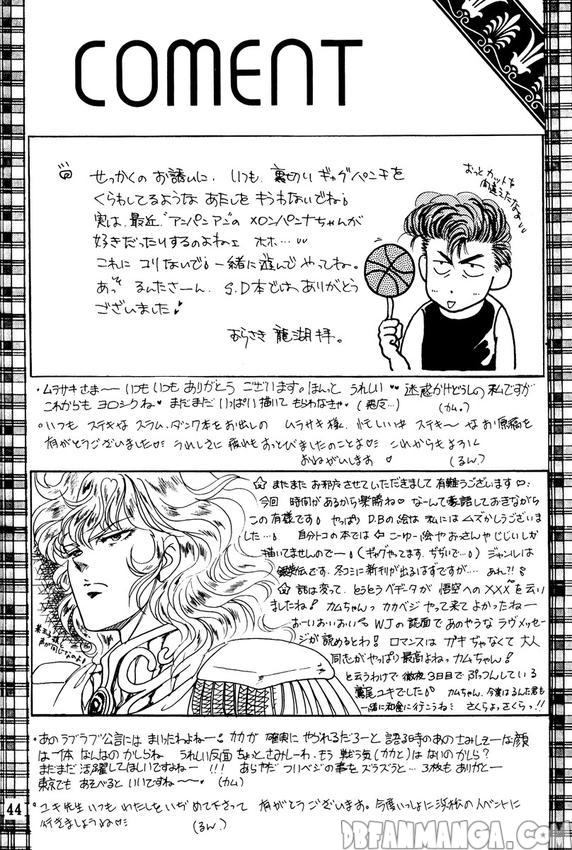 COMENT
せっかくのお誘いに、いつも、裏切りギャグペンキを
くらもしてるような あたしを キラわないでね!
実は、最近、アンパンマンの メロンパンナちゃんが
好きだったりするのよねェ ホホ…
これに コリないで! 一緒に遊んで やってね。
あっ るんたさーん、S.D本では、ありがとう
ございました!
むらさき 龍湖 拝。
おっとカットを
間違えちゃったよ
・ムラサキさま〜 いつも いつも ありがとう ございます。ほんっと うれしい 迷惑かけどうしの私ですが
これからも ヨロシクね まだまだ いっぱい描いて もらわなきゃ (悪友…) (カム。)
いつも ステキな スラム・ダンク本を お出しの ムラサキ様、忙しい中 ステキ〜なお原稿を
有がとうございました うれしさに 疲れも ふっとびましたのことよ これからもよろしく
おねがいします (るん。)
☆またまた お邪魔させていただきまして 有難うございます
今回 時間があるから楽勝ね なーんて豪語しておきながら
この有様です! やっぱり D.Bの絵は 私には ムズかしうございま
した…! 自分トコの本では こーゆー絵や おさんや じじいしか
描いてませんので〜! (ギャグやってます。ぢぢいで…) ジャンルは
銀英伝です。冬コミに新刊が出るはずですが… あれ?!
☆話は変って、とうとうベヂータが 悟空への×××を云い
ましたね! カムちゃんっ カカベジ やって来て よかったねー
おーいおーいおいら WJの誌面で あのやうな ラヴメッセー
ジが 読めるとわ! ロマンスは ガキぢゃなくて 大人
同志が やっぱり最高よね、カムちゃん!
と云うわけで 徹夜3日目で ぶっつんしている
鷲尾ユキでした カムちゃん、今度はるんた君も
一緒に和食に行こうね! さくらよ、さくらっ!!
・あのラブラブ公言には まいったわよねー カカが 確実に やられるだろーと 語る時の あのさみしそーな顔
は一体 なんなのかしらね うれしい反面 ちょっとさみしーわ、もう 戦う気(カカと)は ないのかしら?
まだまだ 活躍してほしいですねー!!! あらやだ つい ベジの事を ズラズラと… 3枚も ありがとー
東京でも あそべると いいですねー (カム)
ユキ先生 いつも わたしを いぢめて下さって 有がとうございます。今度いっしょに 浜松の イベントに
行きましょうね (るん。)
44
DBFANMANGA.COM